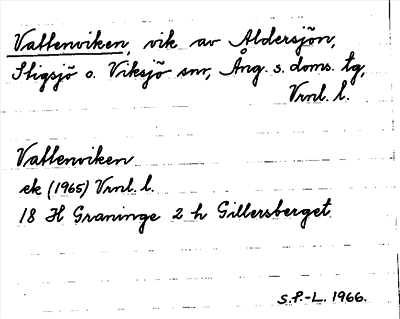 Vattenviken, vik av Åldersjön,
Stigsjö o. Viksjö snr, Ång. s. doms. tg,
Vrnl. l.
Vattenviken
ek (1965) Vrnl. l.
18 H Graninge 2 h Gillersberget
S.P.-L. 1966.